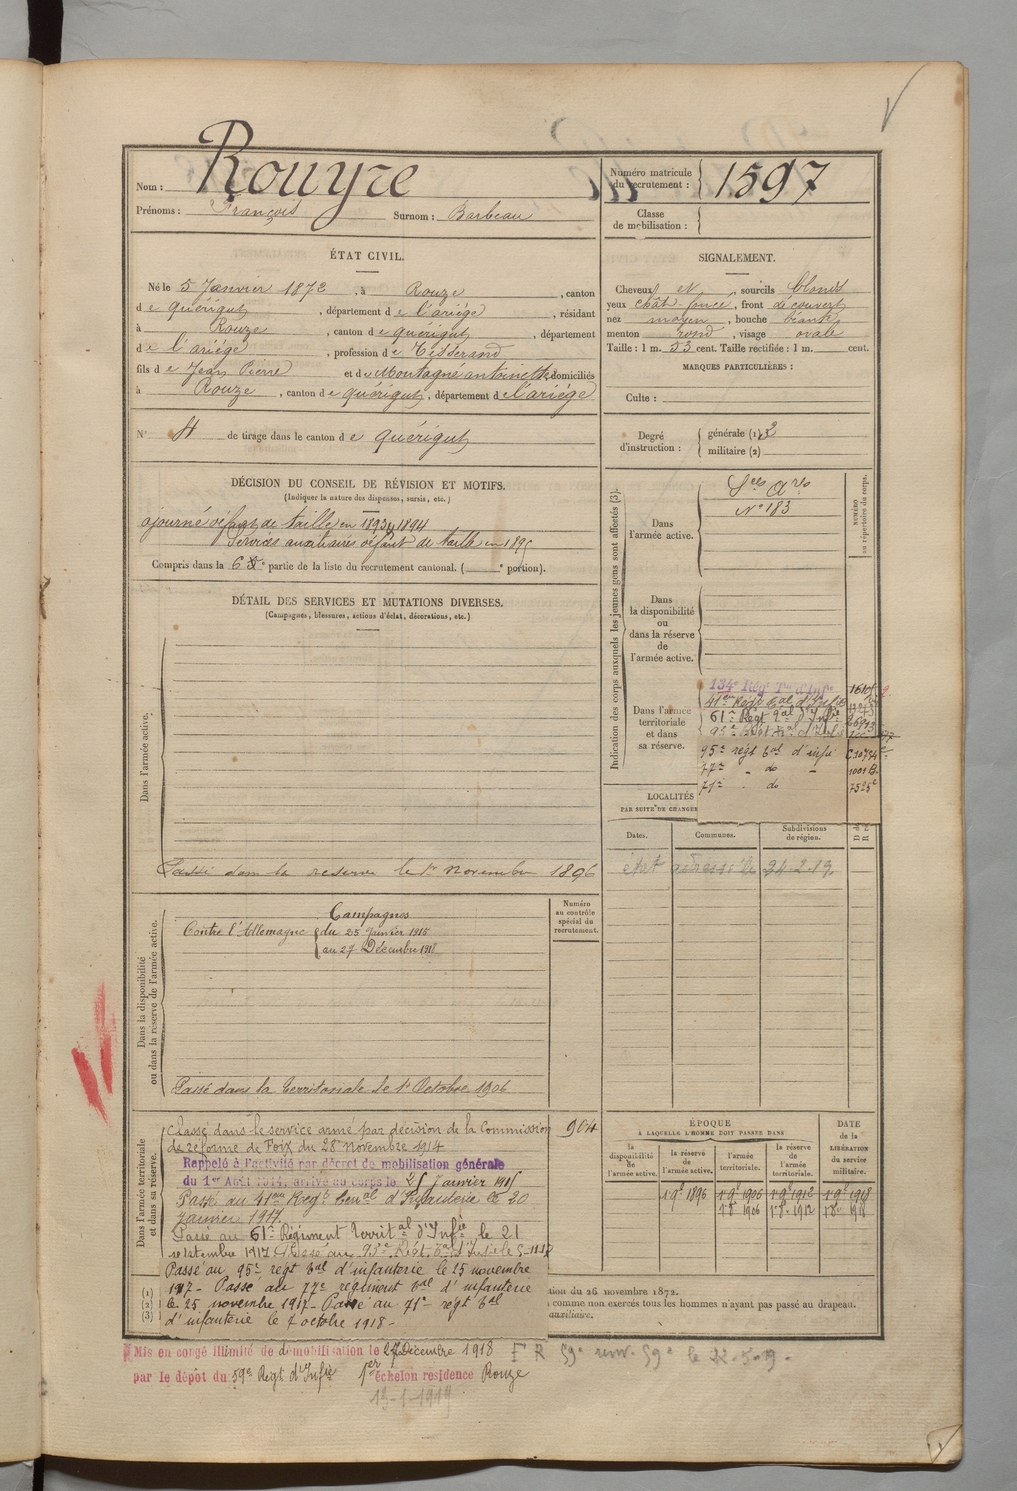 Nom : Rouyre
Prénoms : François Surnom : Barbeau
Numéro matricule du recrutement : 1597
Classe de mobilisation :
ÉTAT CIVIL.
Né le 5 Janvier 1872, à Rouze, canton
de quérigut, département de l'ariége, résidant
à Rouze, canton de quérigut, département
de l'ariége, profession de Tisserand
fils de Jean Pierre et de Montagné antoinette domiciliés
à Rouze, canton de quérigut, département de l'ariége
N° 4 de tirage dans le canton de quérigut
SIGNALEMENT.
Cheveux et, sourcils blonds
yeux chât-foncé, front découvert
nez moyen, bouche béante
menton rond, visage ovale
Taille : 1 m. 53 cent. Taille rectifiée : 1 m. cent.
MARQUES PARTICULIÈRES :
Culte :
Degré d'instruction : générale (1) 3
militaire (2)
DÉCISION DU CONSEIL DE RÉVISION ET MOTIFS.
(Indiquer la nature des dispenses, sursis, etc.)
ajourné défaut de taille en 1893 et 1894
Services auxiliaires défaut de taille en 1895
Compris dans la 6e partie de la liste du recrutement cantonal. ( e portion).
DÉTAIL DES SERVICES ET MUTATIONS DIVERSES.
(Campagnes, blessures, actions d'éclat, décorations, etc.)
Dans l'armée active.
Passé dans la reserve le 1er Novembre 1896
Dans la disponibilité
ou dans la réserve de l'armée active.
Campagnes
Contre l'Allemagne du 25 Janvier 1915
au 27 Décembre 1918
Passé dans la territoriale le 1er Octobre 1906
Numéro
au contrôle
spécial du
recrutement.
904
Dans l'armée territoriale
et dans sa réserve.
Classé dans le service armé par décision de la Commission
de reforme de Foix du 28 Novembre 1914
Rappelé à l'activité par décret de mobilisation générale
du 1er Août 1914, arrivé au corps le 25 Janvier 1915
Passé au 41me Régt terral d'Infanterie le 20
Janvier 1917.
Passé au 61e Régiment Territal d'Infie le 21
septembre 1917 Passé au 93e Régt
Passé au 95e régt tal d'infanterie le 25 novembre
1917 - Passé au 77e regiment tal d'infanterie
le 25 novembre 1917 - Passé au 71e régt tal
d'infanterie le 7 octobre 1918 -
(1)
(2)
(3)
Mis en congé illimité de démobilisation le 27 Décembre 1918
par le dépôt du 59e Régt d'Infie 1er échelon residence Rouze
13-1-1919
F R 59e renv. 59e le 22.5.19.
Indication des corps auxquels les jeunes gens sont affectés (3).
NUMÉRO
au répertoire du corps.
Dans
l'armée active.
Sces Ares
N° 183
Dans
la disponibilité
ou
dans la réserve
de
l'armée active.
Dans l'armée
territoriale
et dans
sa réserve.
134e Régt Tal d'Infie
41me Régt tal d'Infie
61e Régt tal d'Infie
93e Régt tal d'Infie
95e régt tal d'infie C10734
77e - do - 1001 B.
71e - do 7525
LOCALITÉS
PAR SUITE DE CHANGE
Dates. Communes. Subdivisions
de région.
état adressé le 24-2-19.
ÉPOQUE
À LAQUELLE L'HOMME DOIT PASSER DANS
la
disponibilité
de
l'armée active.
la réserve
de
l'armée active.
l'armée
territoriale.
la réserve
de
l'armée
territoriale.
DATE
de la
LIBÉRATION
du service
militaire.
1 9bre 1896 1 9bre 1906 1 9bre 1912 1 9bre 1918
1 8bre 1906 1 8bre 1912 1 8bre 1918
tion du 26 novembre 1872.
comme non exercés tous les hommes n'ayant pas passé au drapeau.
auxiliaire.